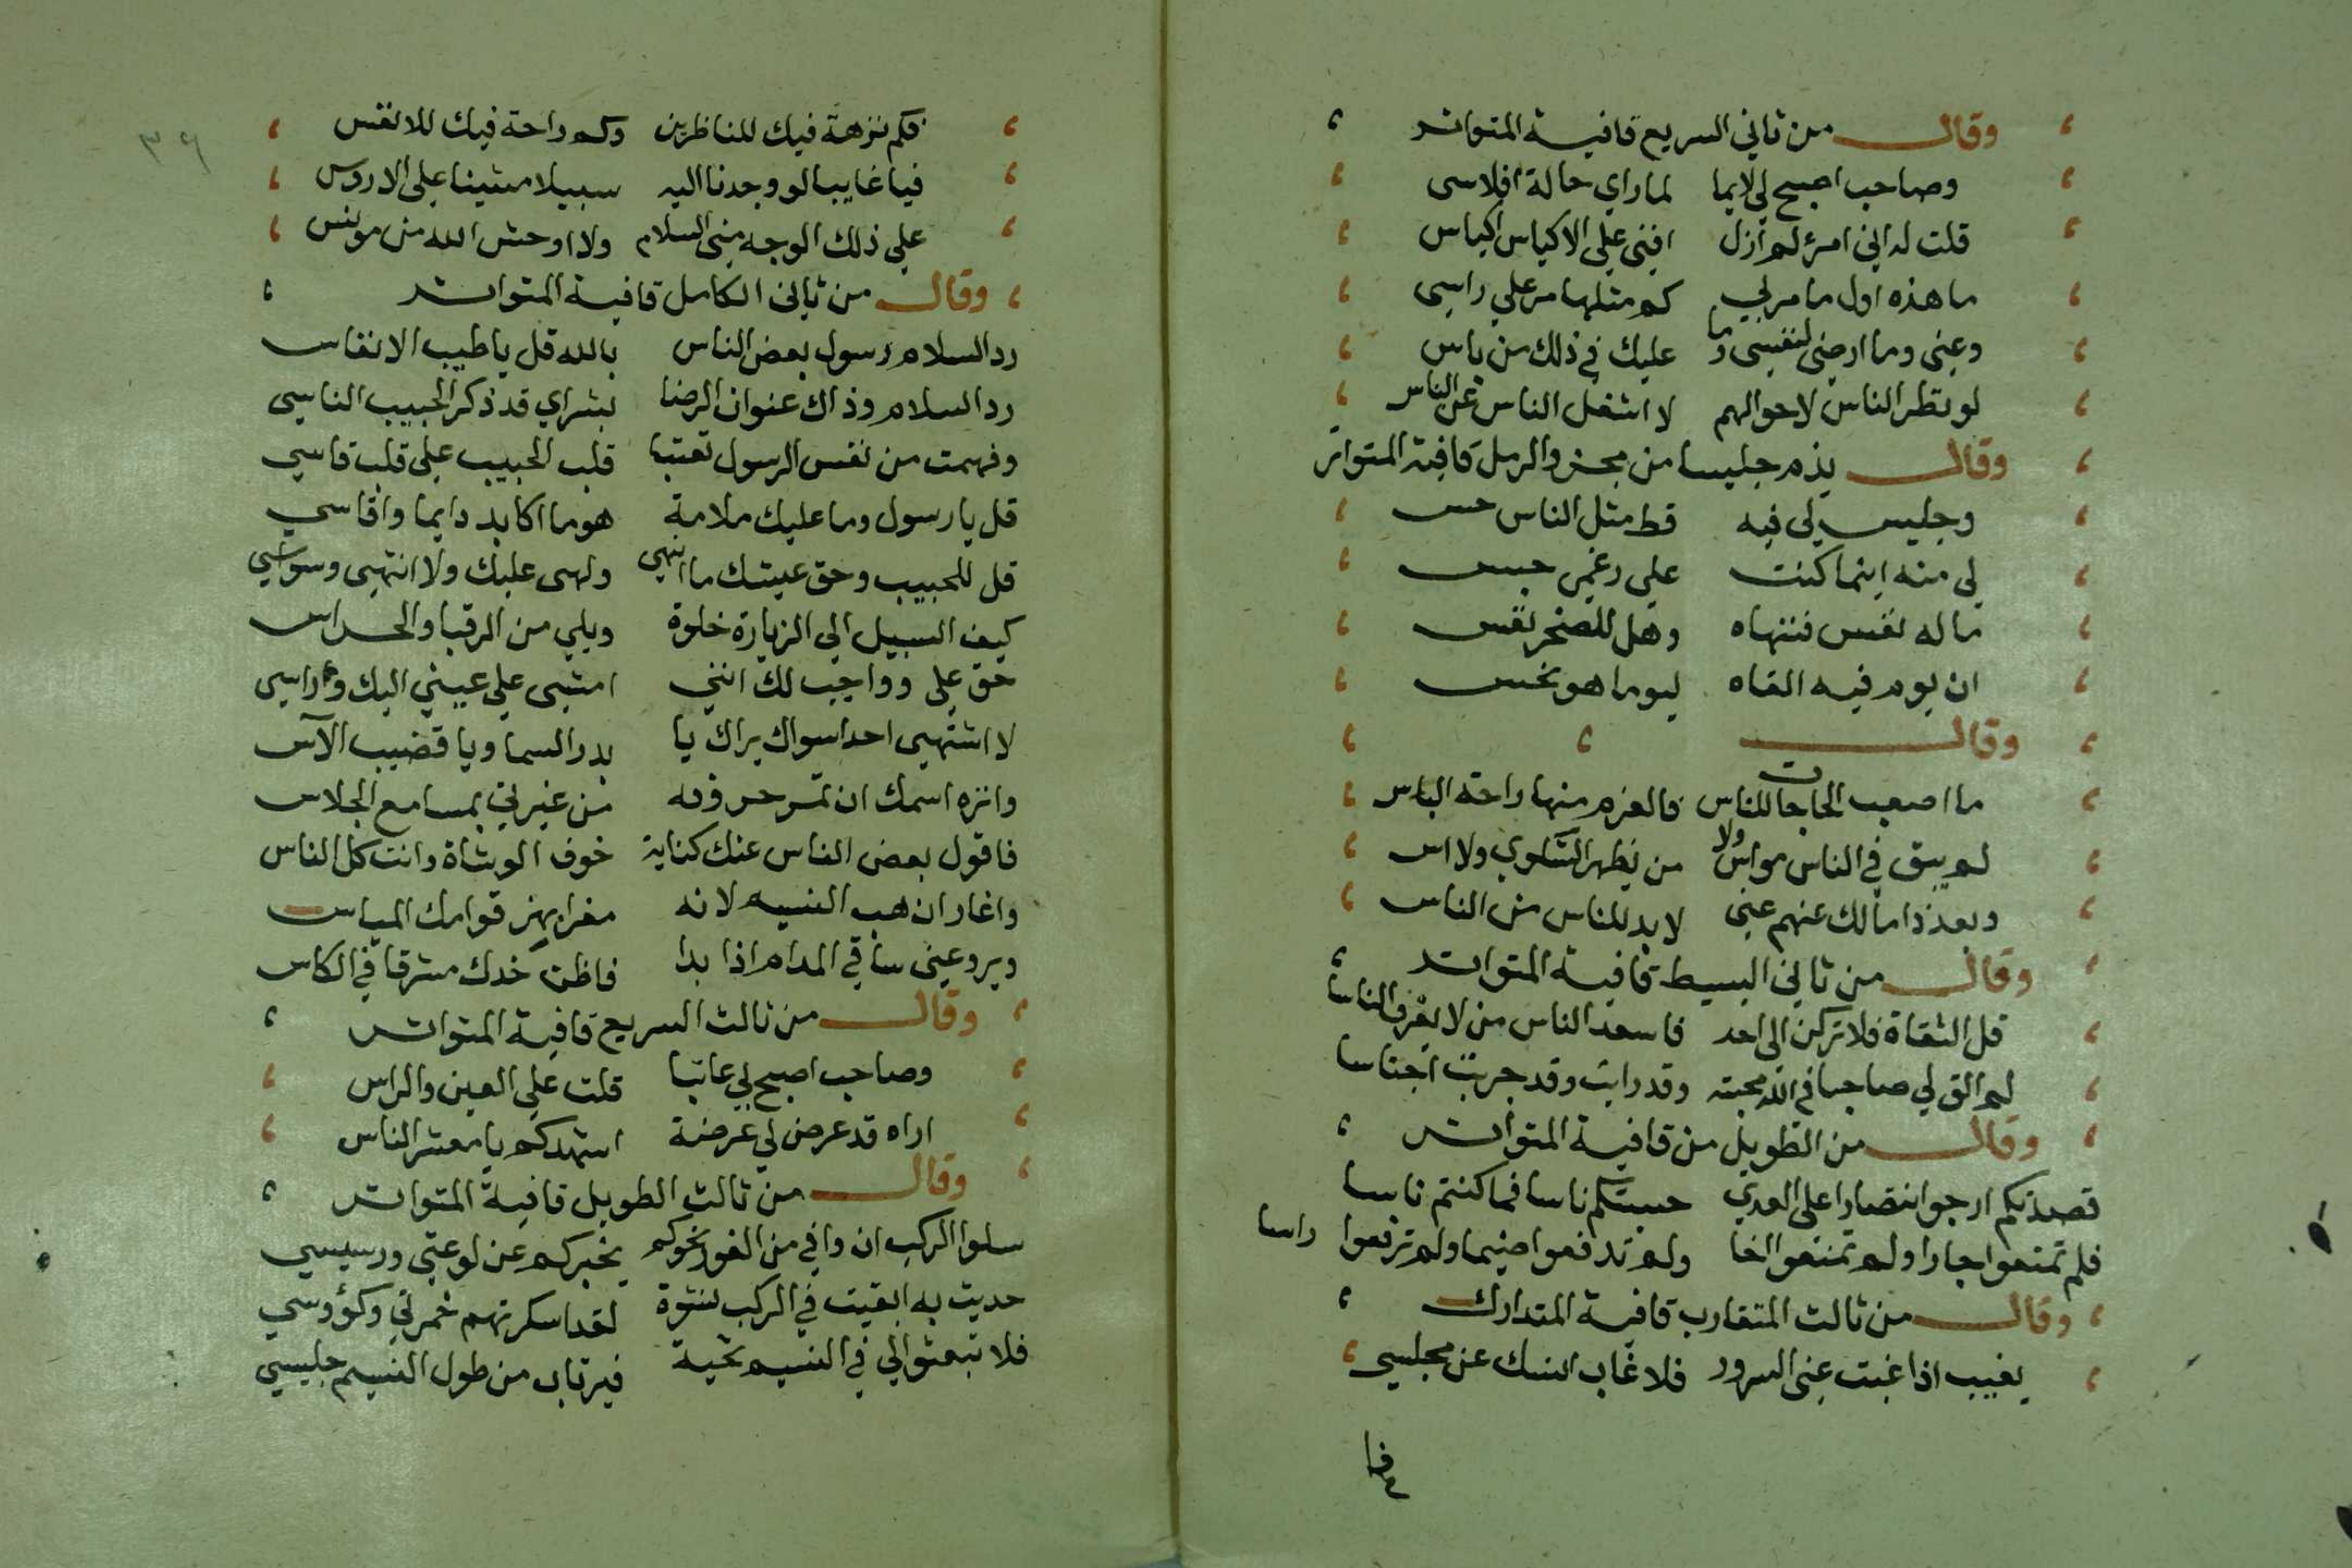 وقال من ثاني السريع قافية المتواتر
وصاحب اصبح لي لايما لما راي حالة افلاسى
قلت له اني امرؤ لم ازل افنى على الاكياس اكياسى
ما هذه اول ما مر بي كم مثلها مر على راسى
دعنى وما ارضى لنفسى وما عليك في ذلك من باس
لو نظر الناس لاحوالهم لا اشتغل الناس عن الناس
وقال يذم جليسا من مجزو الرمل قافية المتواتر
وجليس لى فيه قط مثل الناس حس
لى منه اينما كنت على رغمى حبس
ما له نفس فتنهاه وهل للصخر نفس
ان يوم فيه القاه ليوما هو نحس
وقال
ما اصعب الحاجات للناس فالغرم منها راحة الياس
لم يبق في الناس مواس ولا من يظهر الشكوي ولا اس
وبعد ذا مالك عنهم غنى لا بد للناس من الناس
وقال من ثاني البسيط قافية المتواتر
قل الثقاة فلا تركن الى احد فاسعد الناس من لا يعرف الناسا
لم الق لي صاحبا في الله محبته وقد رايت وقد جربت اجناسا
وقال من الطويل من قافية المتواتر
قصدتكم ارجو انتصارا على العدي حسبتكم ناسا فما كنتم ناسا
فلم تمنعوا جارا ولم تمنعوا اخا ولم تدفعوا ضيما ولم ترفعوا راسا
وقال من ثالث المتقارب قافية المتدارك
يغيب اذا غبت عنى السرور فلا غاب انسك عن مجلسي
فكم
فكم نزهة فيك للناظرين وكم راحة فيك للانفس
فيا غايبا لو وجدنا اليه سبيلا مشينا على الاروس
على ذلك الوجه منى السلام ولا اوحش الله من مونس
وقال من ثانى الكامل قافية المتواتر
رد السلام رسول بعض الناس بالله قل يا طيب الانفاس
رد السلام وذاك عنوان الرضا بشراي قد ذكر الحبيب الناسي
وفهمت من نفس الرسول تعتبا قلب الحبيب على قلب قاسي
قل يا رسول وما عليك ملامة هو ما اكابد دايما واقاسي
قل للحبيب وحق عيشك ما انتهى ولهى عليك ولا انتهى وسواسي
كيف السبيل الى الزيارة خلوة ويلي من الرقبا والحراس
حق على وواجب لك اننى امشى على عيني اليك وراسى
لا اشتهى احدا سواك يراك يا بدر السما ويا قضيب الآس
وانزه اسمك ان تمر حروفه من غيرتي بمسامع الجلاس
فاقول بعض الناس عنك كناية خوف الوشاة وانت كل الناس
واغار ان هب النسيم لانه مغرا بهز قوامك المياس
ويروعنى ساقي المدام اذا بدا فاظن خدك مشرقا في الكاس
وقال من ثالث السريع قافية المتواتر
وصاحب اصبح لي عاتبا قلت على العين والراس
اراه قد عرض لي عرضة اشهدكم يا معشر الناس
وقال من ثالث الطويل قافية المتواتر
سلوا الركب ان وافي من الغور نحوكم يخبركم عن لوعتي ورسيسي
حديث به ابقيت في الركب نشوة لقد اسكرتهم خمرتي وكؤوسي
فلا تبعثوا لي في النسيم تحية فيرتاب من طول النسيم جليسي